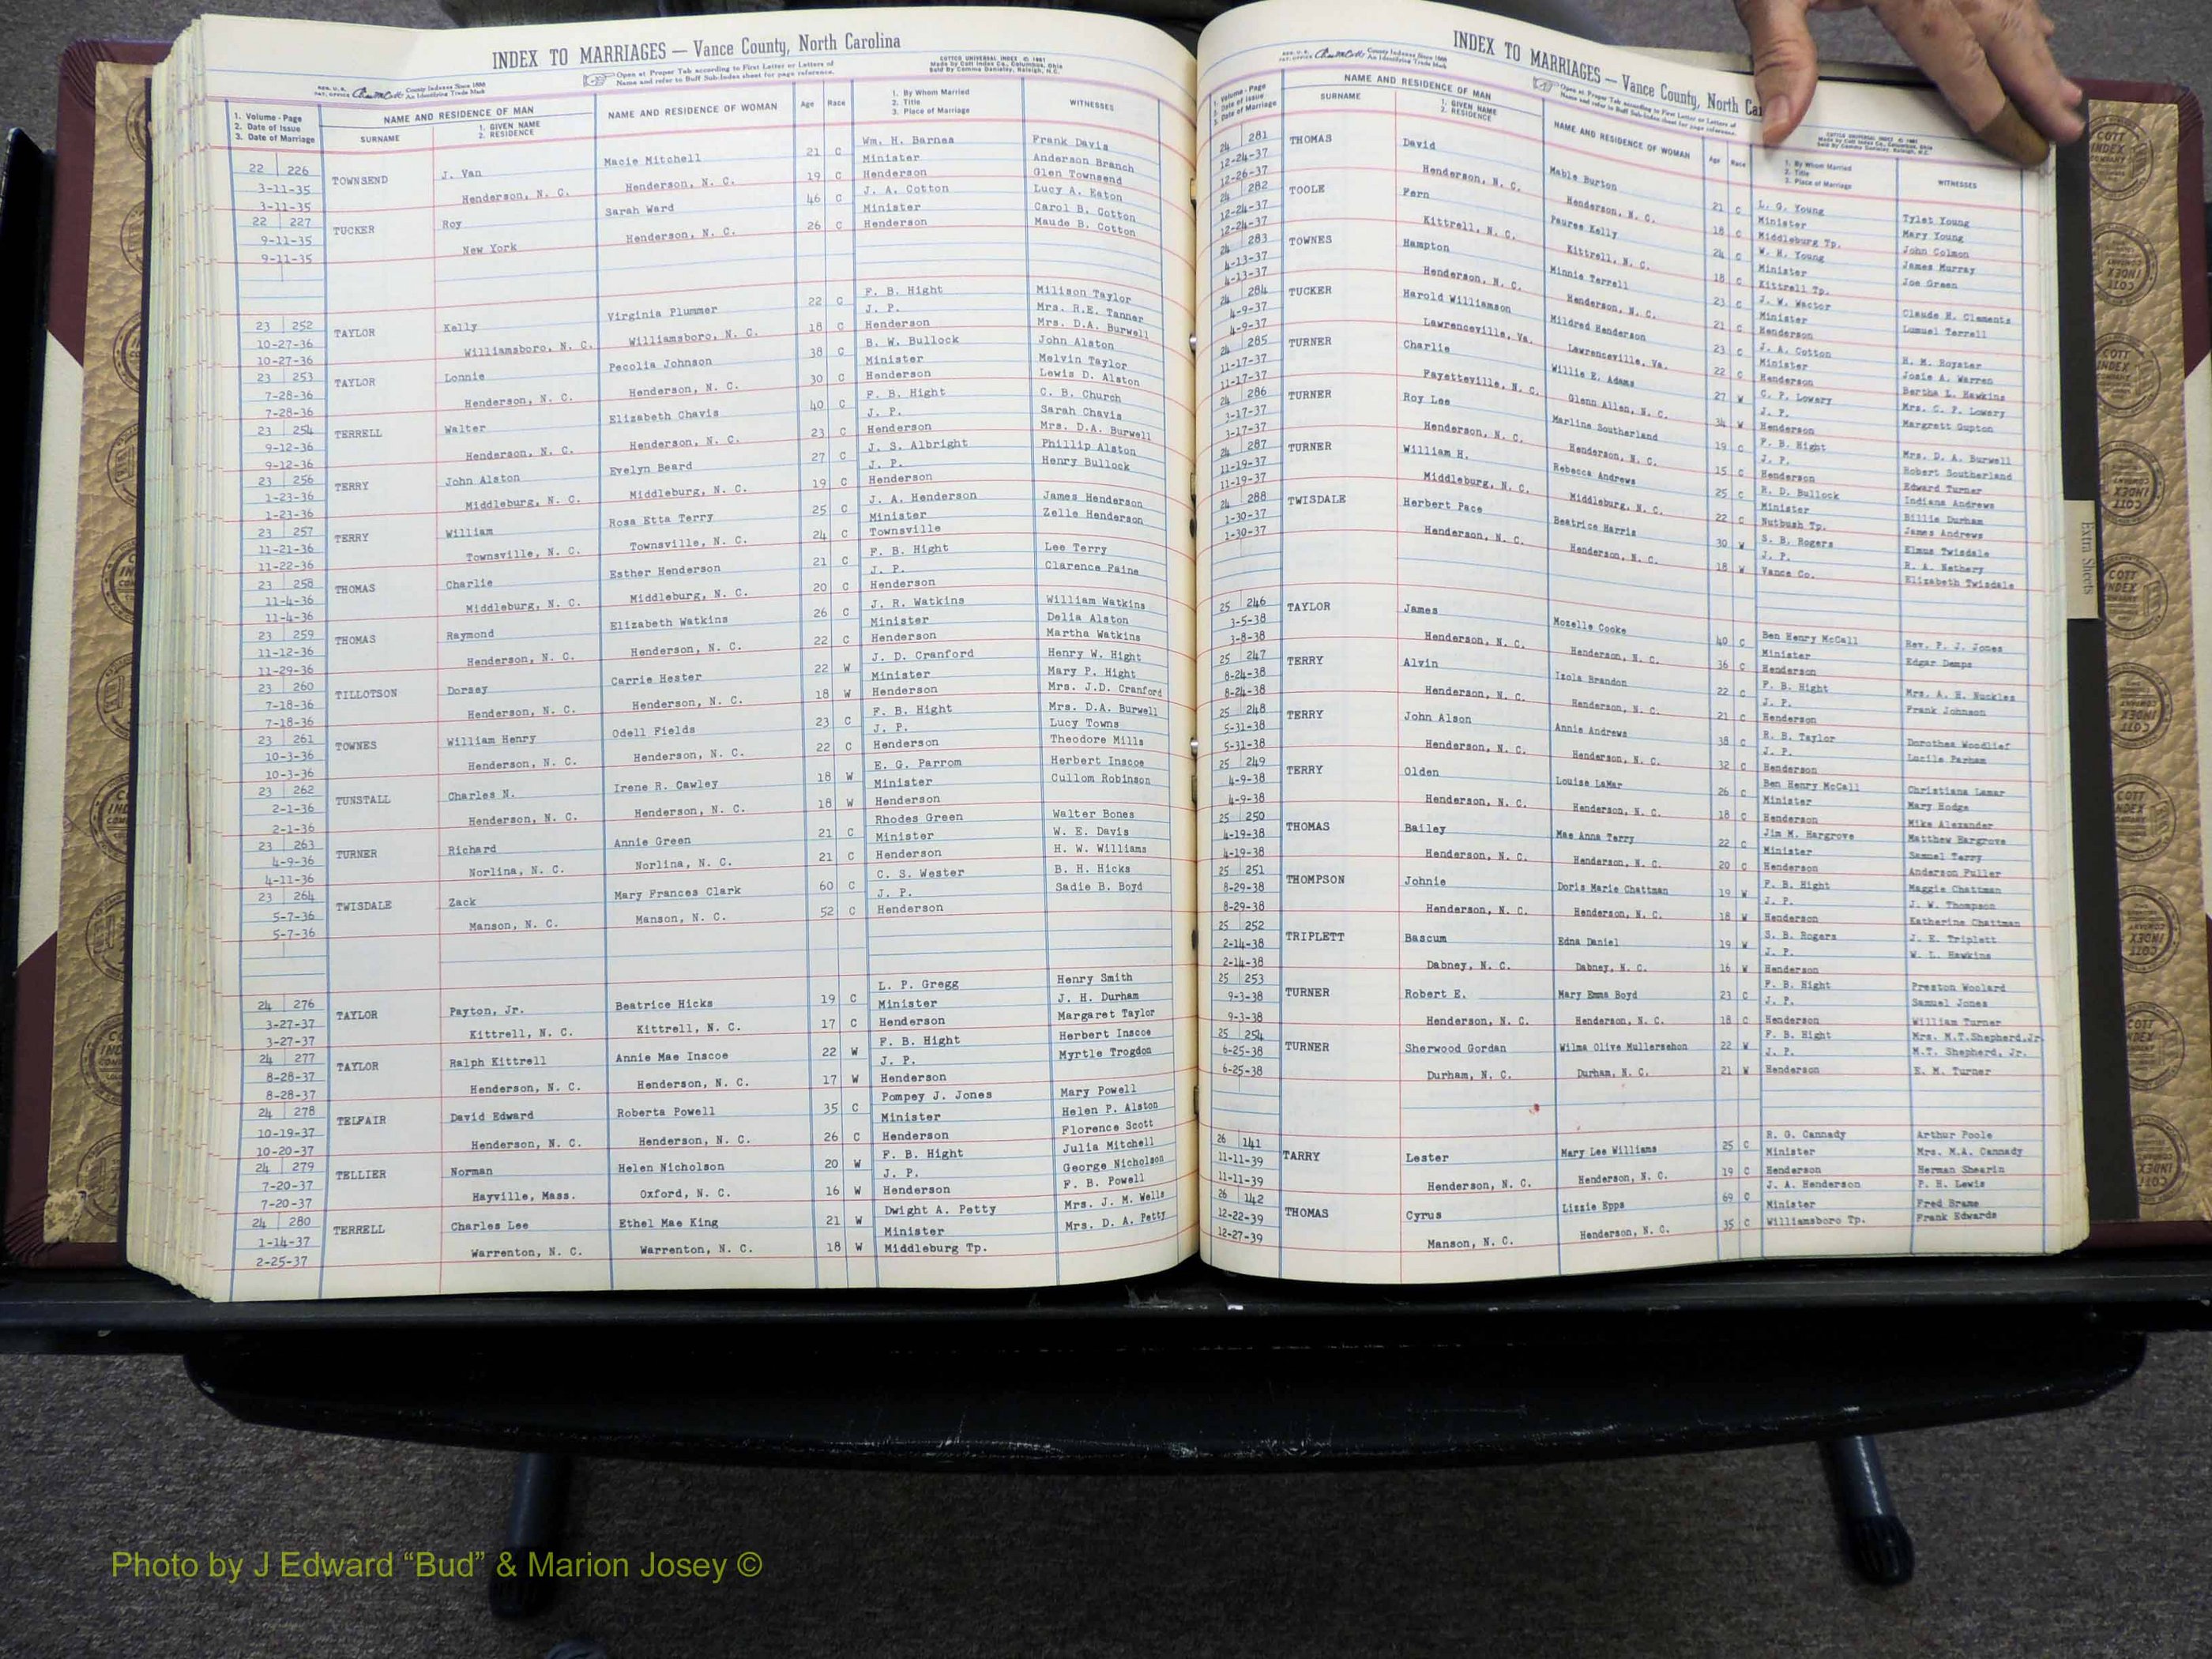 INDEX TO MARRIAGES — Vance County, North Carolina
Open at Proper Tab according to First Letter or Letters of
Name and refer to Buff Sub-Index sheet for page reference.
1. Volume - Page
2. Date of Issue
3. Date of Marriage
NAME AND RESIDENCE OF MAN
SURNAME
1. GIVEN NAME
2. RESIDENCE
NAME AND RESIDENCE OF WOMAN
Age
Race
1. By Whom Married
2. Title
3. Place of Marriage
WITNESSES
22 226 TOWNSEND J. Van Macie Mitchell 21 C Wm. H. Barnes Frank Davis
3-11-35 Henderson, N. C. Henderson, N. C. 19 C Minister Anderson Branch
3-11-35 Henderson Glen Townsend
22 227 TUCKER Roy Sarah Ward 46 C J. A. Cotton Lucy A. Eaton
9-11-35 New York Henderson, N. C. 26 C Minister Carol B. Cotton
9-11-35 Henderson Maude B. Cotton
23 252 TAYLOR Kelly Virginia Plummer 22 C F. B. Hight Milison Taylor
10-27-36 Williamsboro, N. C. Williamsboro, N. C. 18 C J. P. Mrs. H.E. Tanner
10-27-36 Henderson Mrs. D.A. Burwell
23 253 TAYLOR Lonnie Pecolia Johnson 38 C B. W. Bullock John Alston
7-28-36 Henderson, N. C. Henderson, N. C. 30 C Minister Melvin Taylor
7-28-36 Henderson Lewis D. Alston
23 254 TERRELL Walter Elizabeth Chavis 40 C F. B. Hight C. B. Church
9-12-36 Henderson, N. C. Henderson, N. C. 23 C J. P. Sarah Chavis
9-12-36 Henderson Mrs. D.A. Burwell
23 256 TERRY John Alston Evelyn Beard 27 C J. S. Albright Phillip Alston
1-23-36 Middleburg, N. C. Middleburg, N. C. 19 C J. P. Henry Bullock
1-23-36 Henderson
23 257 TERRY William Rosa Etta Terry 25 C J. A. Henderson James Henderson
11-21-36 Townsville, N. C. Townsville, N. C. 24 C Minister Zelle Henderson
11-22-36 Townsville
23 258 THOMAS Charlie Esther Henderson 21 C F. B. Hight Lee Terry
11-4-36 Middleburg, N. C. Middleburg, N. C. 20 C J. P. Clarence Faine
11-4-36 Henderson
23 259 THOMAS Raymond Elizabeth Watkins 26 C J. R. Watkins William Watkins
11-12-36 Henderson, N. C. Henderson, N. C. 22 C Minister Delia Alston
11-29-36 Henderson Martha Watkins
23 260 TILLOTSON Dorsey Carrie Hester 22 W J. D. Cranford Henry W. Hight
7-18-36 Henderson, N. C. Henderson, N. C. 18 W Minister Mary P. Hight
7-18-36 Henderson Mrs. J.D. Cranford
23 261 TOWNES William Henry Odell Fields 23 C F. B. Hight Mrs. D.A. Burwell
10-3-36 Henderson, N. C. Henderson, N. C. 22 C J. P. Lucy Towns
10-3-36 Henderson Theodore Mills
23 262 TUNSTALL Charles N. Irene R. Cawley 18 W E. G. Parrom Herbert Inscoe
2-1-36 Henderson, N. C. Henderson, N. C. 18 W Minister Cullom Robinson
2-1-36 Henderson
23 263 TURNER Richard Annie Green 21 C Rhodes Green Walter Bones
4-9-36 Norlina, N. C. Norlina, N. C. 21 C Minister W. E. Davis
4-11-36 Henderson H. W. Williams
23 264 TWISDALE Zack Mary Frances Clark 60 C C. S. Wester B. H. Hicks
5-7-36 Manson, N. C. Manson, N. C. 52 C J. P. Sadie B. Boyd
5-7-36 Henderson
24 276 TAYLOR Payton, Jr. Beatrice Hicks 19 C L. P. Gregg Henry Smith
3-27-37 Kittrell, N. C. Kittrell, N. C. 17 C Minister J. H. Durham
3-27-37 Henderson Margaret Taylor
24 277 TAYLOR Ralph Kittrell Annie Mae Inscoe 22 W F. B. Hight Herbert Inscoe
8-28-37 Henderson, N. C. Henderson, N. C. 17 W J. P. Myrtle Trogdon
8-28-37 Henderson
24 278 TELFAIR David Edward Roberta Powell 35 C Pompey J. Jones Mary Powell
10-19-37 Henderson, N. C. Henderson, N. C. 26 C Minister Helen P. Alston
10-20-37 Henderson Florence Scott
24 279 TELLIER Norman Helen Nicholson 20 W F. B. Hight Julia Mitchell
7-20-37 Hayville, Mass. Oxford, N. C. 16 W J. P. George Nicholson
7-20-37 Henderson F. B. Powell
24 280 TERRELL Charles Lee Ethel Mae King 21 W Dwight A. Petty Mrs. J. M. Wells
1-14-37 Warrenton, N. C. Warrenton, N. C. 18 W Minister Mrs. D. A. Petty
2-25-37 Middleburg Tp.
INDEX TO MARRIAGES — Vance County, North Ca
Open at Proper Tab according to First Letter or Letters of
Name and refer to Buff Sub-Index sheet for page reference.
1. Volume - Page
2. Date of Issue
3. Date of Marriage
NAME AND RESIDENCE OF MAN
SURNAME
1. GIVEN NAME
2. RESIDENCE
NAME AND RESIDENCE OF WOMAN
Age
Race
1. By Whom Married
2. Title
3. Place of Marriage
WITNESSES
24 281 THOMAS David Mable Burton 21 C L. G. Young Tylet Young
12-24-37 Henderson, N. C. Henderson, N. C. 18 C Minister Mary Young
12-26-37 Middleburg Tp. John Colmon
24 282 TOOLE Fern Pauree Kelly 24 C W. H. Young James Murray
12-24-37 Kittrell, N. C. Kittrell, N. C. 18 C Minister Joe Green
12-24-37 Kittrell Tp.
24 283 TOWNES Hampton Minnie Terrell 23 C J. W. Wactor Claude H. Clements
4-13-37 Henderson, N. C. Henderson, N. C. 21 C Minister Lumuel Terrell
4-13-37 Henderson
24 284 TUCKER Harold Williamson Mildred Henderson 23 C J. A. Cotton H. M. Royster
4-9-37 Lawrenceville, Va. Lawrenceville, Va. 22 C Minister Josie A. Warren
4-9-37 Henderson Bertha L. Hawkins
24 285 TURNER Charlie Willie E. Adams 27 W C. P. Lowery Mrs. C. P. Lowery
11-17-37 Fayetteville, N. C. Glenn Allen, N. C. 34 W J. P. Margrett Gupton
11-17-37 Henderson
24 286 TURNER Roy Lee Marline Southerland 19 C F. B. Hight Mrs. D. A. Burwell
3-17-37 Henderson, N. C. Henderson, N. C. 15 C J. P. Robert Southerland
3-17-37 Henderson Edward Turner
24 287 TURNER William H. Rebecca Andrews 25 C R. D. Bullock Indiana Andrews
11-19-37 Middleburg, N. C. Middleburg, N. C. 22 C Minister Billie Durham
11-19-37 Nutbush Tp. James Andrews
24 288 TWISDALE Herbert Pace Beatrice Harris 30 W S. B. Rogers Elmus Twisdale
1-30-37 Henderson, N. C. Henderson, N. C. 18 W J. P. R. A. Nethery
1-30-37 Vance Co. Elizabeth Twisdale
25 246 TAYLOR James Mozelle Cooke 40 C Ben Henry McCall Rev. P. J. Jones
3-5-38 Henderson, N. C. Henderson, N. C. 36 C Minister Edgar Damps
3-8-38 Henderson
25 247 TERRY Alvin Izola Brandon 22 C F. B. Hight Mrs. A. H. Nuckles
8-24-38 Henderson, N. C. Henderson, N. C. 21 C J. P. Frank Johnson
8-24-38 Henderson
25 248 TERRY John Alson Annie Andrews 38 C R. B. Taylor Dorothea Woodlief
5-31-38 Henderson, N. C. Henderson, N. C. 32 C J. P. Lucile Parham
5-31-38 Henderson
25 249 TERRY Olden Louise LaMar 26 C Ben Henry McCall Christiana Lamar
4-9-38 Henderson, N. C. Henderson, N. C. 18 C Minister Mary Hodge
4-9-38 Henderson Mike Alexander
25 250 THOMAS Bailey Mae Anna Terry 22 C Jim M. Hargrove Matthew Hargrove
4-19-38 Henderson, N. C. Henderson, N. C. 20 C Minister Samuel Terry
4-19-38 Henderson Anderson Fuller
25 251 THOMPSON Johnie Doris Marie Chattman 19 W F. B. Hight Maggie Chattman
8-29-38 Henderson, N. C. Henderson, N. C. 18 W J. P. J. W. Thompson
8-29-38 Henderson Katherine Chattman
25 252 TRIPLETT Bascum Edna Daniel 19 W S. B. Rogers J. E. Triplett
2-14-38 Dabney, N. C. Dabney, N. C. 16 W J. P. W. L. Hawkins
2-14-38 Henderson
25 253 TURNER Robert E. Mary Emma Boyd 23 C F. B. Hight Preston Woolard
9-3-38 Henderson, N. C. Henderson, N. C. 18 C J. P. Samuel Jones
9-3-38 Henderson William Turner
25 254 TURNER Sherwood Gordan Wilma Olive Mullersehon 22 W F. B. Hight Mrs. M.T.Shepherd,Jr
6-25-38 Durham, N. C. Durham, N. C. 21 W J. P. M.T. Shepherd, Jr.
6-25-38 Henderson E. M. Turner
26 141 TARRY Lester Mary Lee Williams 25 C R. G. Cannady Arthur Poole
11-11-39 Henderson, N. C. Henderson, N. C. 19 C Minister Mrs. M.A. Cannady
11-11-39 Henderson Herman Shearin
26 142 THOMAS Cyrus Lizzie Epps 69 C J. A. Henderson P. H. Lewis
12-22-39 Manson, N. C. Henderson, N. C. 35 C Minister Fred Brame
12-27-39 Williamsboro Tp. Frank Edwards
Extra Sheets
COTT
INDEX
COMPANY
Photo by J Edward “Bud” & Marion Josey ©